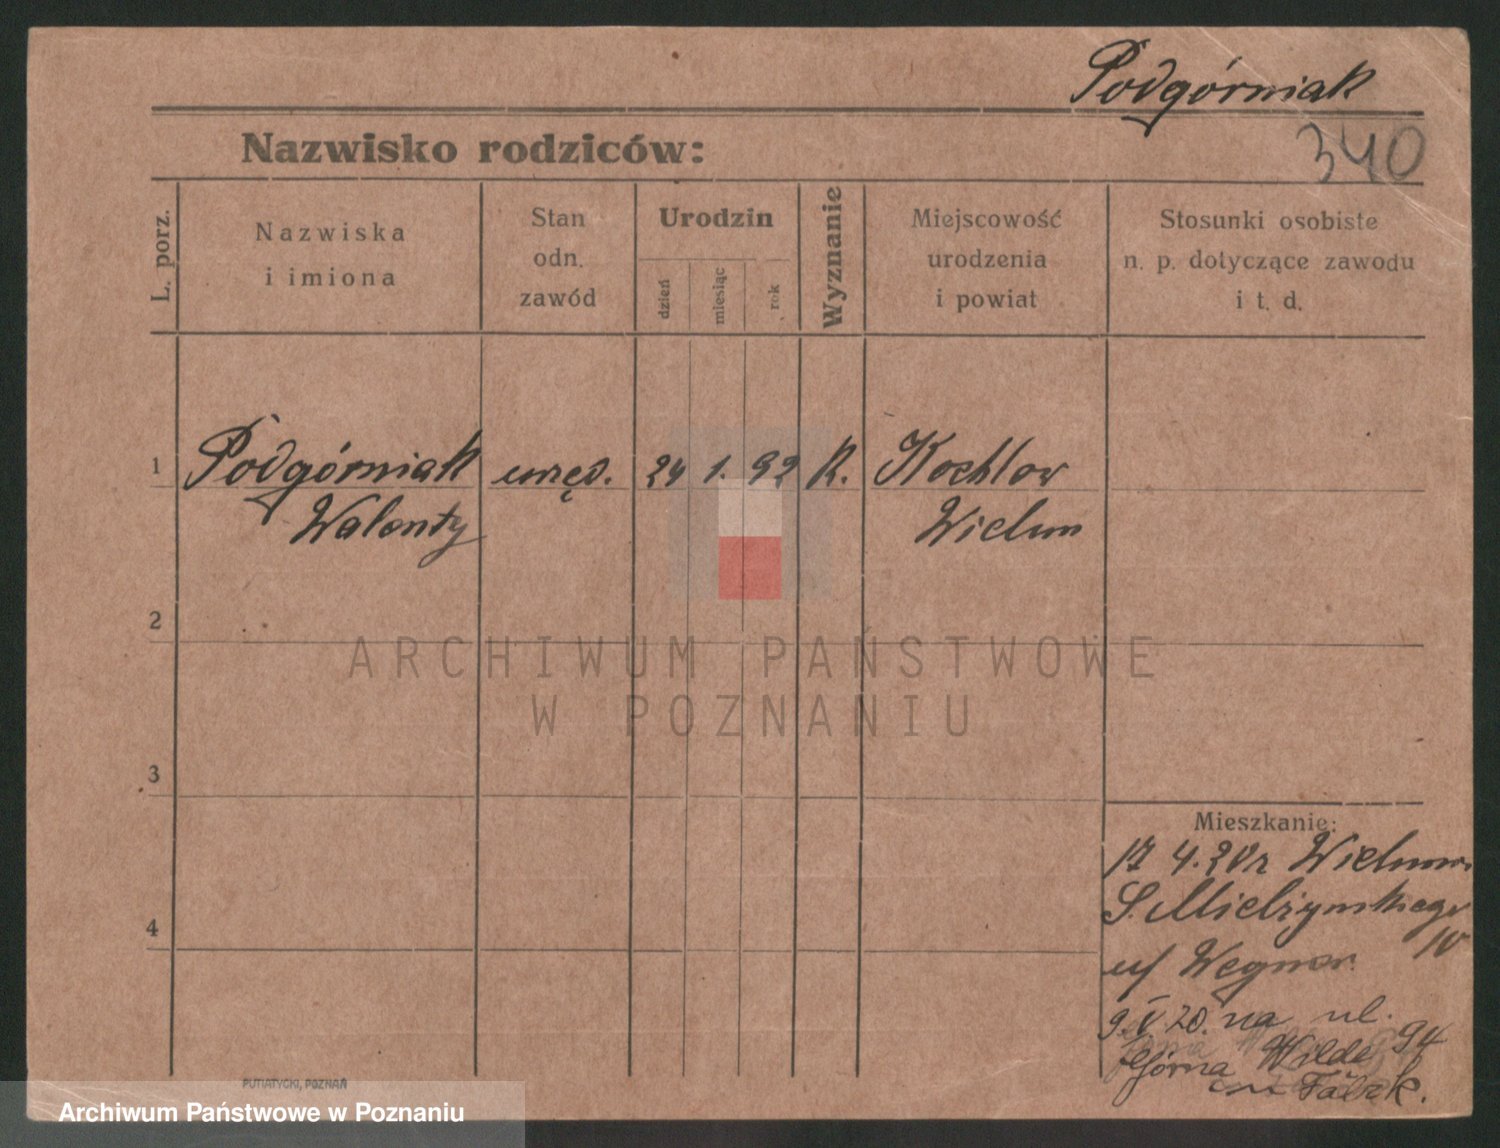 Podgórniak
340
Nazwisko rodziców:
L. porz.
Nazwiska
i imiona
Stan
odn.
zawód
Urodzin
dzień
miesiąc
rok
Wyznanie
Miejscowość
urodzenia
i powiat
Stosunki osobiste
n. p. dotyczące zawodu
i t. d.
1 Podgórniak urzęd. 24 1. 92 R. Kochlow
Walenty Wielun
2
3
4
Mieszkanie:
17 4. 20 r
S. Mielżyńskiego
IV
u/ Wegner
9. V 20. na ul.
Górna Wilda 94
PUTIATYCKI, POZNAŃ
ARCHIWUM PAŃSTWOWE
W POZNANIU
Archiwum Państwowe w Poznaniu